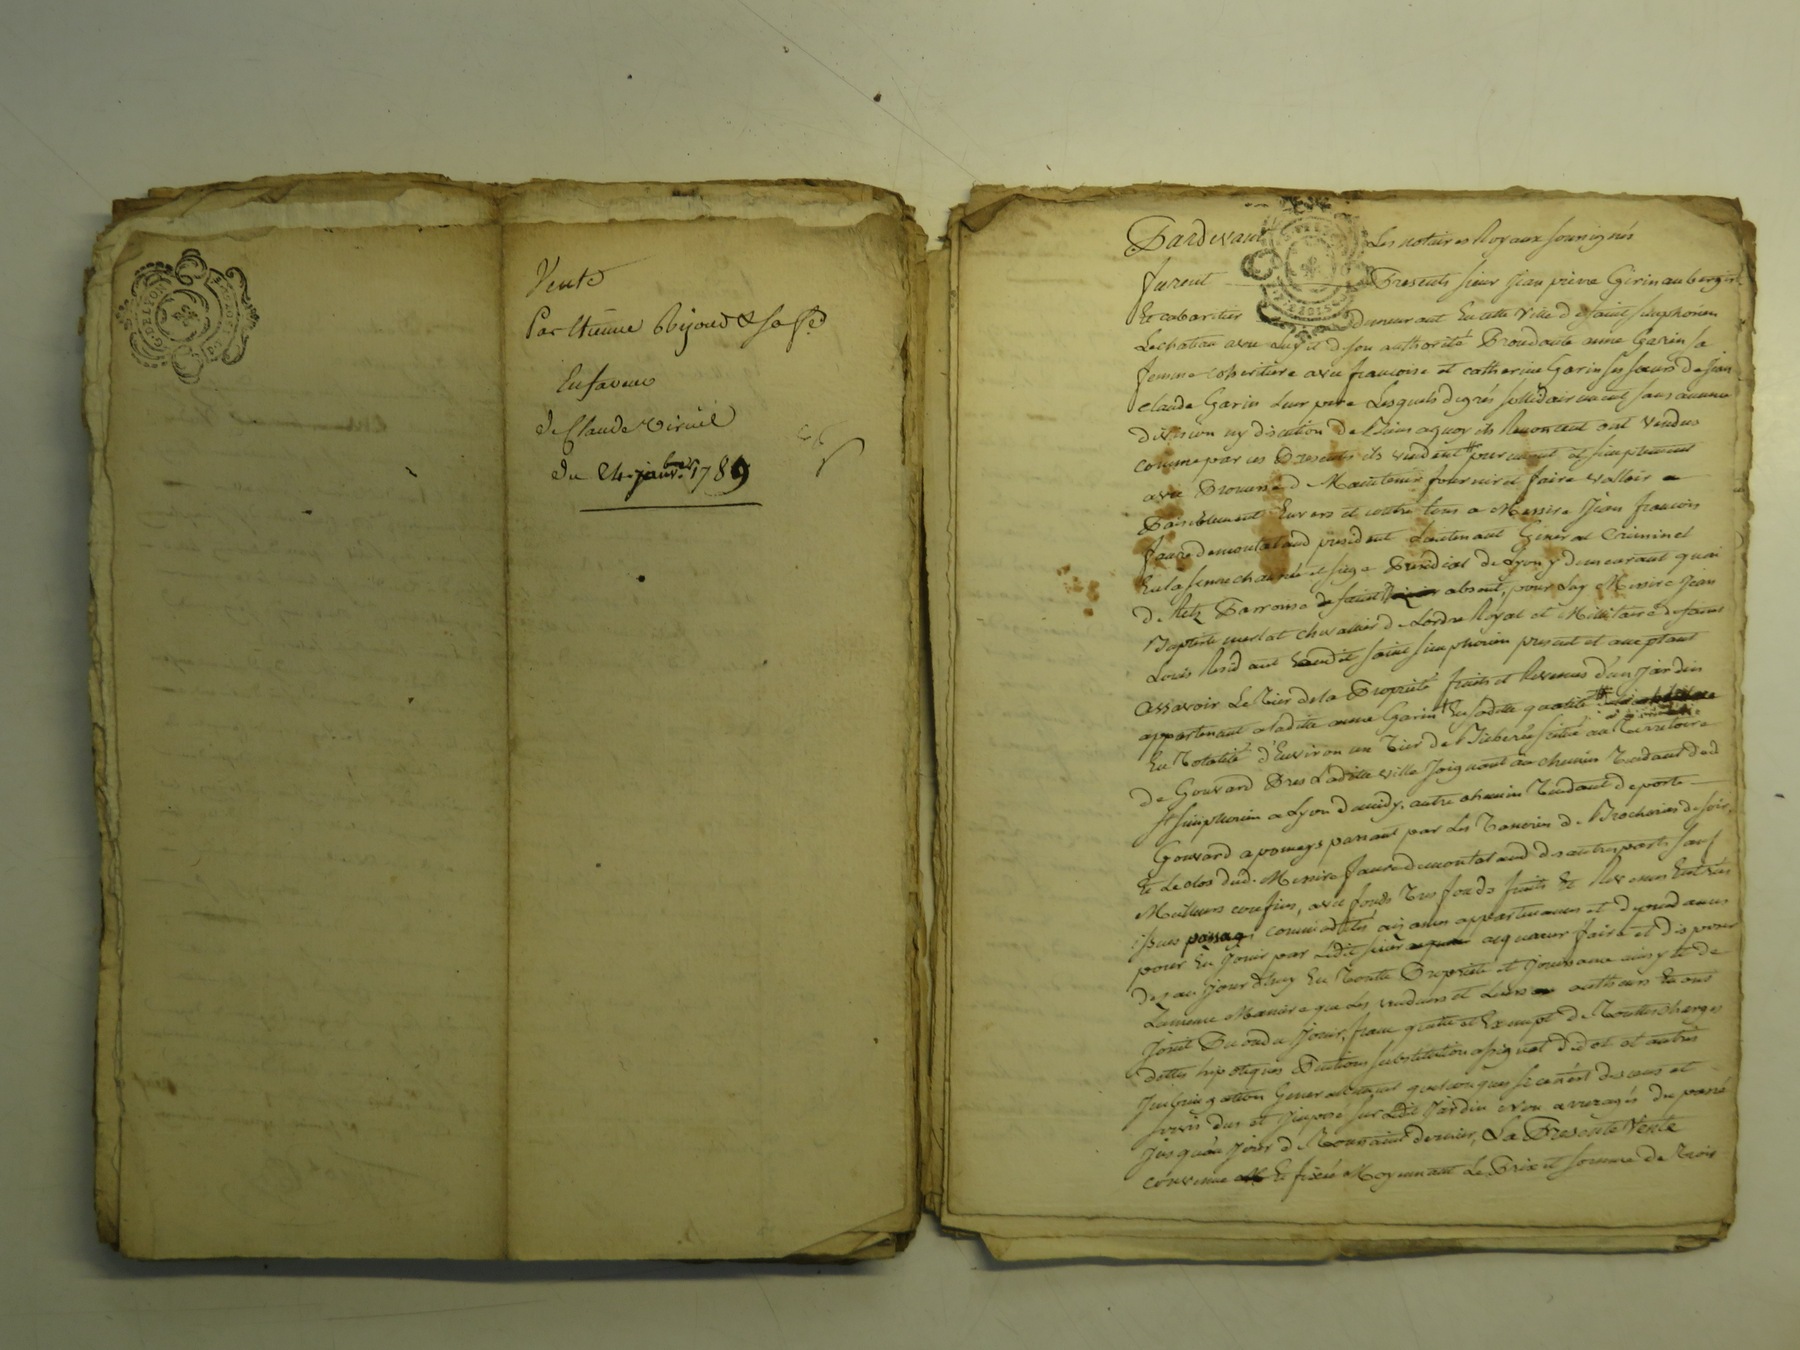 G. DE LYON
Vente
Par Etienne Bijoud & sa fe
En faveur
de Claude Viricel
du 24 janv. 1789
Pardevant Les notaires Royaux soussignés
furent Presents sieur Jean pierre Girin aubergiste
Et cabaretier demeurant En cette ville de saint simphorien
Lechateau avec Luy et de son authorité Procedante anne Garin sa
femme coheritiere avec francoise et catherine Garin ses sœurs de Jean
claude Garin Leur pere Lesquels de grés sollidairement sans aucune
division ny discution de Biens aquoy ils Renoncent ont vendus
comme par ces Presentes ils vendent purement et simplement
avec Promesse de Maintenir fournir et faire valloir
Paisiblement Envers et contre tous a Messire Jean francois
faure de montaland president Lieutenant General Criminel
En la senechaussée et siege Presidial de Lyon y demeurant quai
de Retz Parroisse de saint absent, pour Luy Messire Jean
Baptiste merlat chevallier de Lordre Royal et Millitaire de saint
Louis Resid ant audit saint simphorien present et acceptant
assavoir Le Tier de la Propriété fruits et Revenus d'un Jardin
appartenant a ladite anne Garin En sadite qualité
En Totalité d'Environ un Tier de Bicherée situé au Territoire
de Gouvard Pres Laditte ville Joignant au chemin Tendant dud
St simphorien a Lyon de midy, autre chemin Tendant de porte
Gouvard a pomeys passant par Les Tanneries de Brocharias de soir,
Et Le clos dud. Messire faure de montaland des autres parts sauf
Meilleurs confins, avec fonds Tres fonds fruits Et Revenus Entrées
issues passages commodités aisances appartenances et dependances
pour En Jouir par Ledit sieur acquereur faire et disposer
des aujourd'huy En Toutte Propriété et Jouissance ainsy Et de
La meme Maniere que Les vendeurs et Leurs autheurs En ont
Jouit Pu ou du Jouir, franc quitte et Exempt de Touttes charges
dettes hipoteques Pentions substitution assignat de dot et autres
generalement quelconques si ce n'est des cens et
servis dus et Imposé sur Ledit Jardin Non arreragés du passé
Jusqu'au Jour de Toussaint dernier, La Presente Vente
convenue Et fixée Moyennant Le Prix et somme de Trois